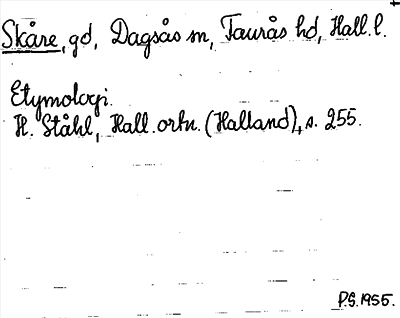 Skåre, gd, Dagsås sn, Faurås hd, Hall. l.
Etymologi.
H. Ståhl, Hall. ortn. (Halland), s. 255.
P.G. 1955.